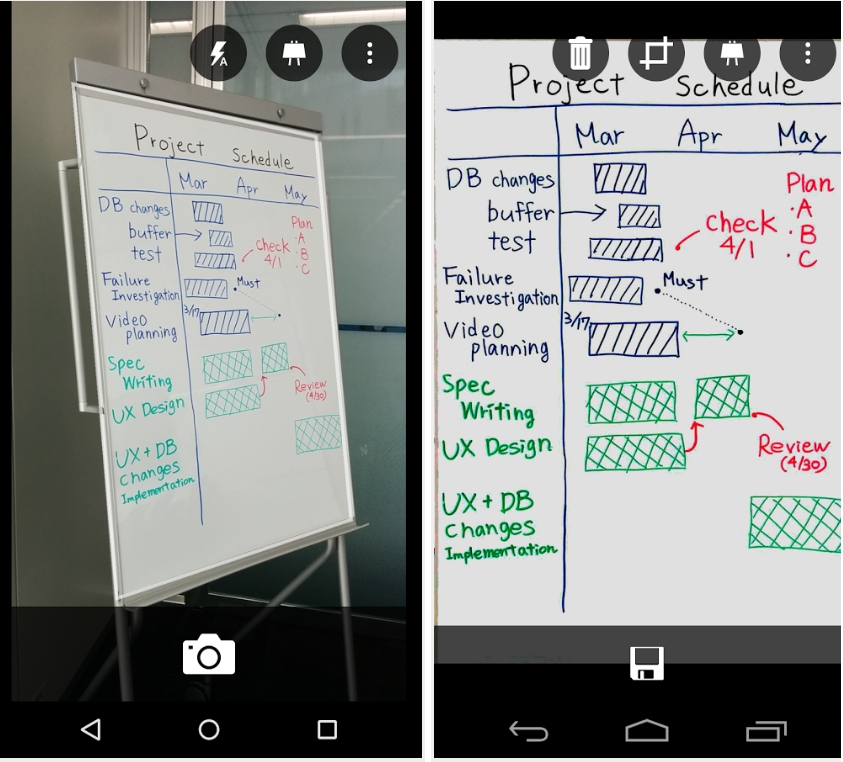 A
Project Schedule
Mar Apr May
DB changes
buffer
test
Plan
·A
·B
·C
check
4/1
Failure
Investigation
Must
3/17
Video
planning
Spec
Writing
Review
(4/30)
UX Design
UX + DB
Changes
Implementation
Project Schedule
Mar Apr May
DB changes
buffer
test
Plan
·A
·B
·C
check
4/1
Failure
Investigation
Must
3/17
Video
planning
Spec
Writing
Review
(4/30)
UX Design
UX + DB
Changes
Implementation